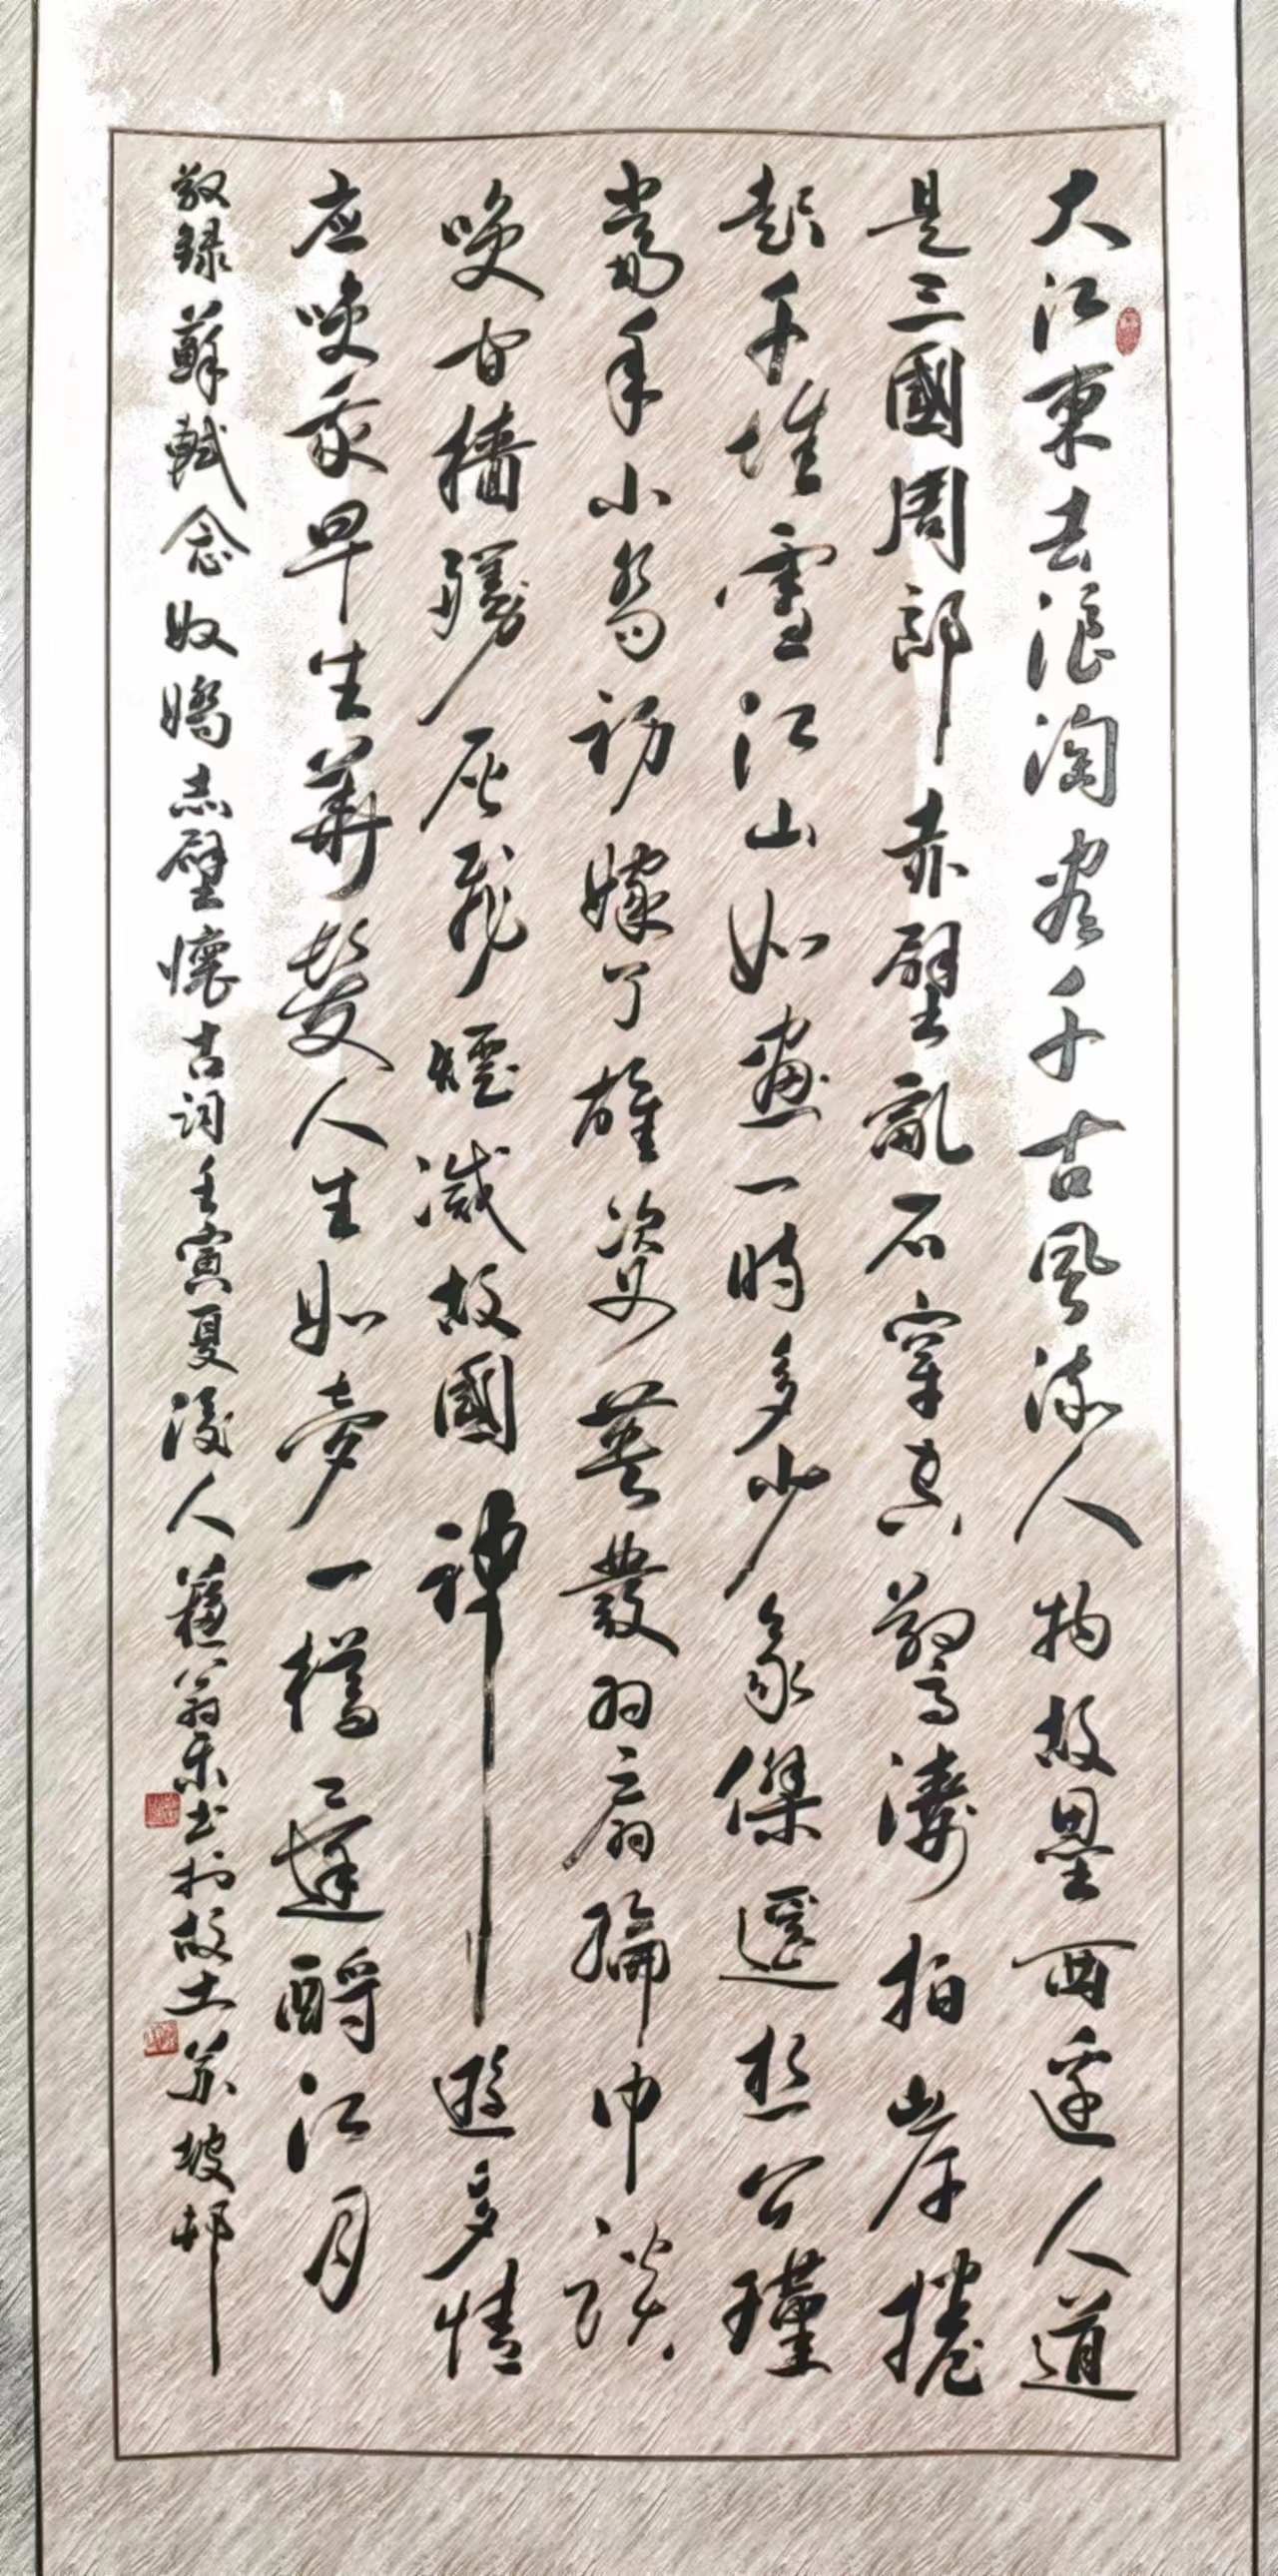 大江東去浪淘盡千古風流人物故壘西邊人道
是三國周郎赤壁亂石穿空驚濤拍岸捲
起千堆雪江山如畫一時多少豪傑遥想公瑾
當年小喬初嫁了雄姿英發羽扇綸巾談
笑間檣艣灰飛煙滅故國神遊多情
應笑我早生華髮人生如夢一樽還酹江月
敬録蘇軾念奴嬌赤壁懷古詞壬寅夏後人蘇翁樂书於故土苏坡邨